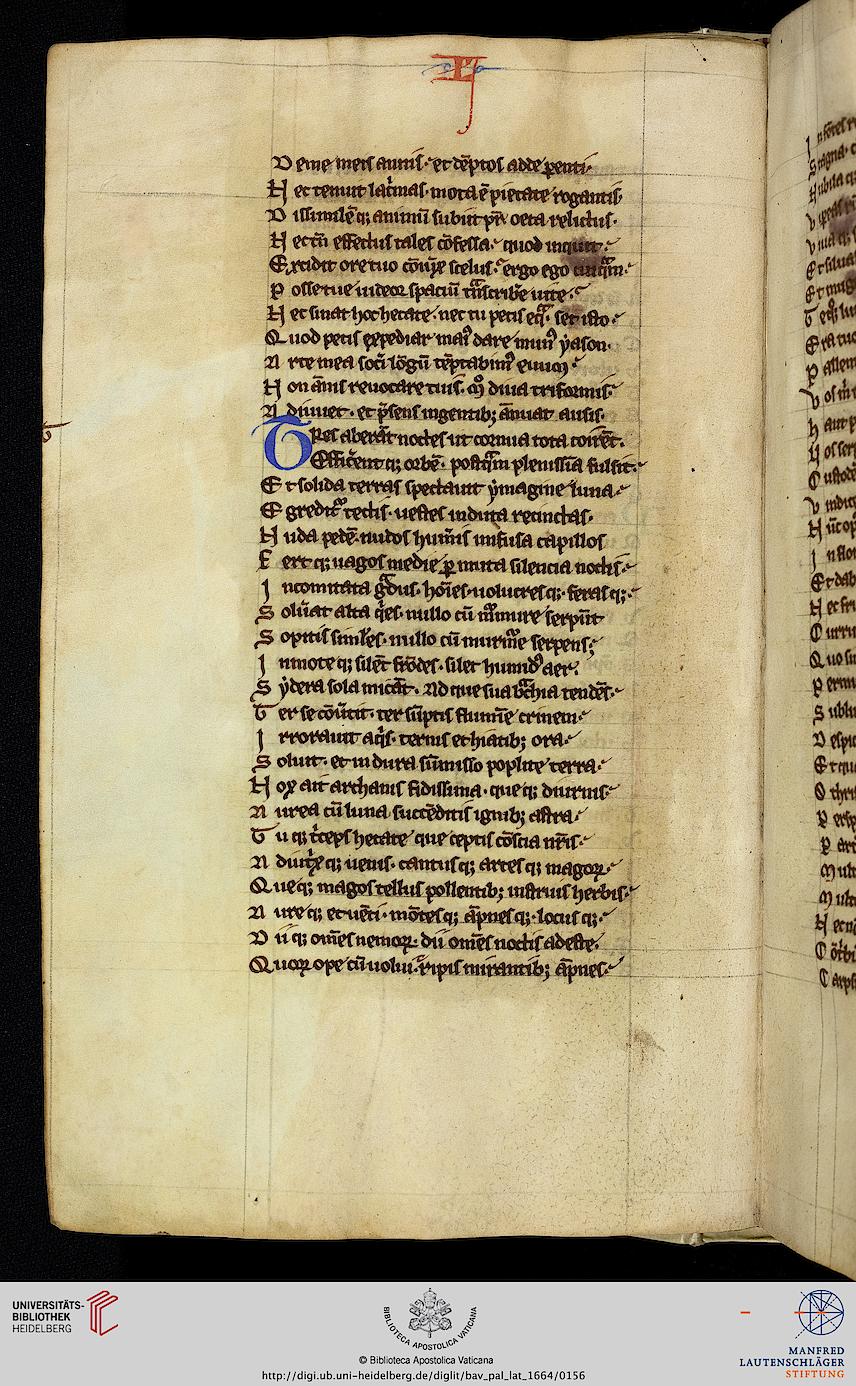 L
Deme meis annis · et dēptos adde pēnti·
Nec tenuit lac̓mas· mota ē pietate rogantis·
Dissimilē q; animū subiit pr̄ oeta relictus·
Nec tn̄ effectus tales cōfessa· quod inquit·
Excidit ore tuo cōiux scelus· ergo ego cuiqͣm·
Posse tue uideor spaciū tͣnscribe uite·
Nec sinat hoc hecate· nec tu petis eqͣ· set isto·
Quod petis expediar mai᾽ dare mun᾽ yason·
Arte mea soc̓i lōgū tēptabim᾽ euum·
Non ānis reuocare tuis· mº diua triformis·
Adiuuet · et p̄sens ingentib; ānuat ausis·
Tres aberāt noctes ut cornua tota coirēt·
Effic̓ent q; orbē· postqͣm plenissīa fulsit·
Et solida terras spectauit ymagine luna·
Egredit᾽ tectis· uestes induta recinctas·
Nuda pedē· nudos hum̓is infusa capillos
Fert q; uagos medie ꝑ muta silencia noctis·
Incomitata gͣdus· hoīes uolucres q; feras q;
Solu̓at alta q̓es· nullo cū mͬmure serpūt
Sopitis similes· nullo cū murmūe serpens;
Inmote q; silēt frōdes· silet humid᾽ aer·
Sydera sola micāt· Ad que sua bͣchia tendēs·
Ter se cōu̓tit· ter sūptis flumīe crinem·
Irrorauit aq̓s· ternis et hiatib; ora·
Soluit· et in dura sūmisso poplite terra·
Nox ait archanis fidissima· que q; diurnis·
Aurea cū luna succēditis ignib; astra·
Tu q; t̓ceps hecate que ceptis cōscia nr̄is·
Adiut̓x q; uenis· cantus q; artes q; magoꝝ·
Que q; magos tellus pollentib; instruis herbis·
Aure q; et uēti· mōtes q; āpnes q; lacus q;
Dii q; omēs nemoꝝ· dii omēs noctis adeste·
Quoꝝ ope cū uolui· ripis mirantib; āpnes·
UNIVERSITÄTS-
BIBLIOTHEK
HEIDELBERG
BIBLIOTHECA APOSTOLICA VATICANA
© Biblioteca Apostolica Vaticana
http://digi.ub.uni-heidelberg.de/diglit/bav_pal_lat_1664/0156
MANFRED
LAUTENSCHLÄGER
STIFTUNG